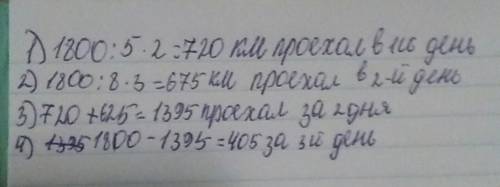 1) 1800:5·2=720 км проехал в 1й день
2) 1800:8·3=675 км проехал в 2-й день
3) 720+625=1395 проехал за 2 дня
4) 1395 1800-1395=405 за 3й день